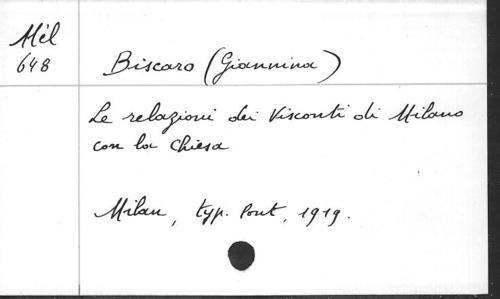 Mél
648
Biscaro (Giannina)
Le relazioni dei Visconti di Milano
con la Chiesa
Milan, typ. Pont, 1919.